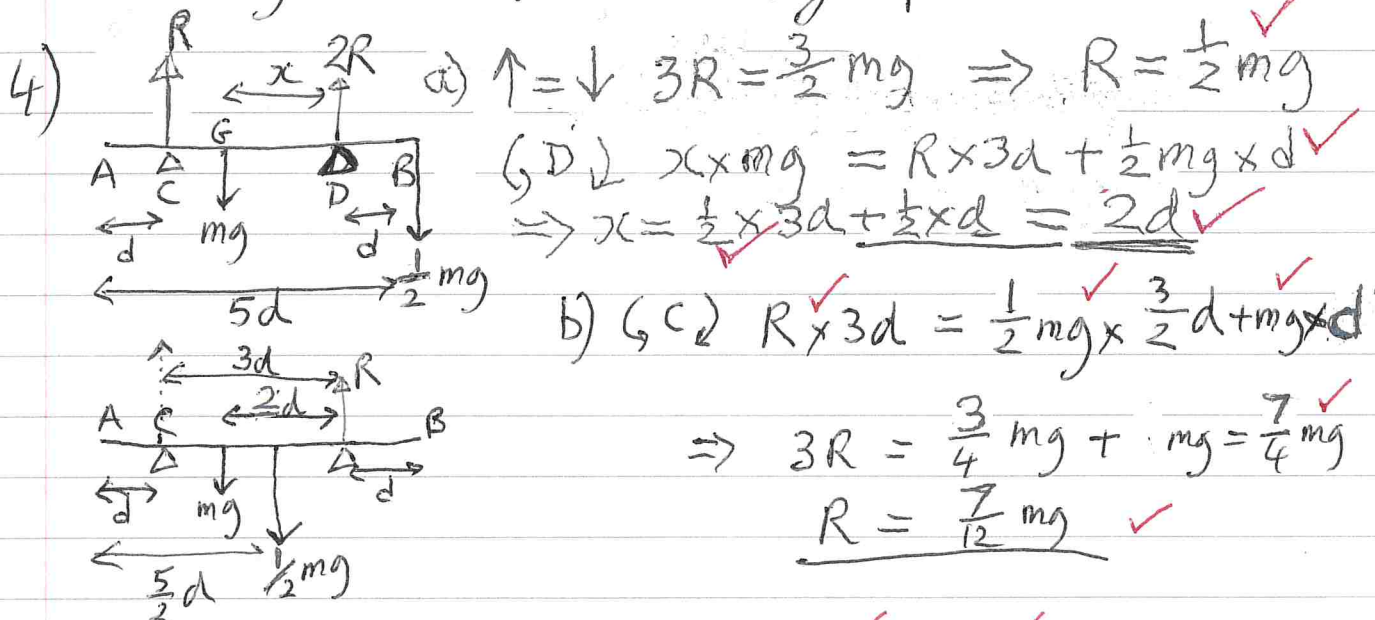 4)
R
2R
x
G
A
C
D
B
d
mg
d
1/2 mg
5d
a) ↑=↓ 3R = 3/2 mg ⇒ R = 1/2 mg
D x×mg = R×3d + 1/2 mg×d
⇒ x = 1/2×3d + 1/2×d = 2d
b) C R×3d = 1/2 mg× 3/2 d + mg×d
⇒ 3R = 3/4 mg + mg = 7/4 mg
R = 7/12 mg
3d
R
2d
A
C
B
d
mg
d
5/2 d
1/2 mg